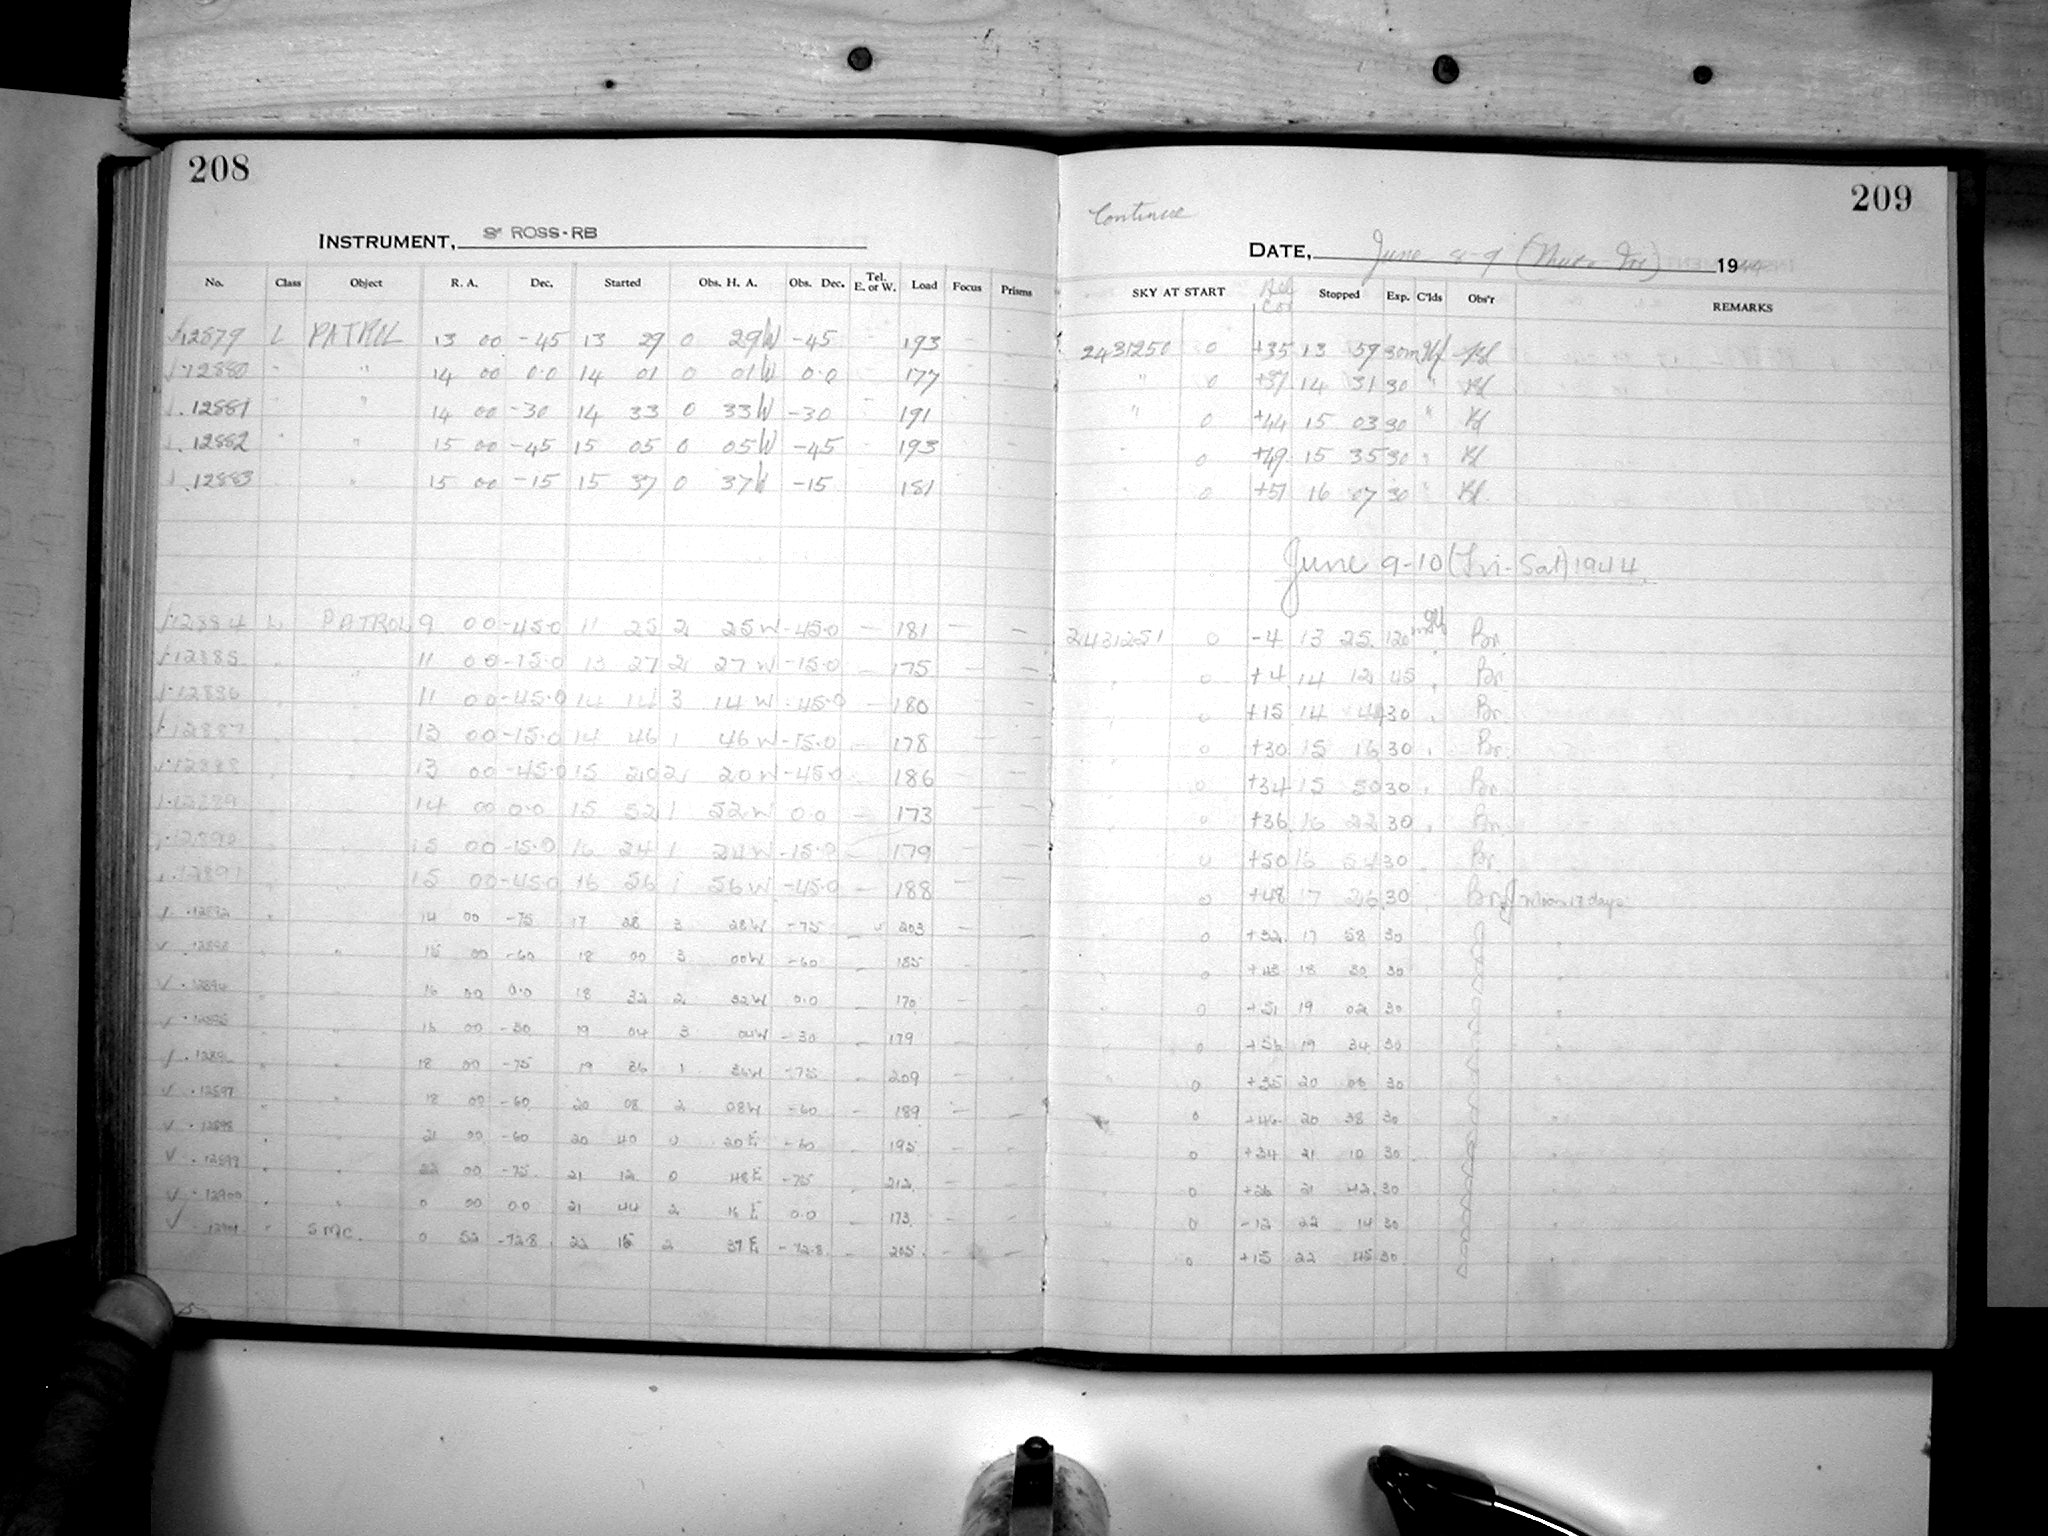 208
INSTRUMENT, 3" ROSS-RB
No. Class Object R. A. Dec. Started Obs. H. A. Obs. Dec. Tel. E. or W. Load Focus Prisms
12879 L PATROL 13 00 -45 13 29 0 29W -45 193
12880 " 14 00 0.0 14 01 0 01W 0.0 177
12881 " 14 00 -30 14 33 0 33W -30 191
12882 " 15 00 -45 15 05 0 05W -45 193
12883 " 15 00 -15 15 37 0 37W -15 181
12884 L PATROL 9 00 -45.0 11 25 2 25W -45.0 — 181 — —
12885 11 00 -15.0 13 27 2 27W -15.0 — 175 — —
12886 11 00 -45.0 14 14 3 14W -45.0 — 180 — —
12887 13 00 -15.0 14 46 1 46W -15.0 — 178 — —
12888 13 00 -45.0 15 20 2 20W -45.0 — 186 — —
12889 14 00 0.0 15 52 1 52W 0.0 — 173 — —
12890 15 00 -15.0 16 24 1 24W -15.0 — 179 — —
12891 15 00 -45.0 16 56 1 56W -45.0 — 188 — —
12892 14 00 -75 17 28 3 28W -75 — 203 — —
12893 15 00 -60 18 00 3 00W -60 — 185 — —
12894 16 00 0.0 18 32 2 32W 0.0 — 170 — —
12895 16 00 -30 19 04 3 04W -30 — 179 — —
12896 18 00 -75 19 36 1 36W -75 — 209 — —
12897 18 00 -60 20 08 2 08W -60 — 189 — —
12898 21 00 -60 20 40 0 20E -60 — 195 — —
12899 22 00 -75 21 12 0 48E -75 — 212 — —
12900 0 00 0.0 21 44 2 16E 0.0 — 173 — —
12901 " SMC. 0 52 -72.8 22 15 2 37E -72.8 — 205 — —
209
Continue
DATE, June 8-9 (Thur-Fri) 1944
SKY AT START Stopped Exp. C'lds Obs'r REMARKS
2431250 0 +35 13 59 30m
" 0 +37 14 31 30 "
" 0 +44 15 03 30 "
0 +49 15 35 30 "
0 +51 16 07 30 "
June 9-10 (Fri-Sat) 1944.
2431251 0 -4 13 25 120 Br.
0 +4 14 12 45 Br.
0 +15 14 44 30 Br.
0 +30 15 16 30 Br.
0 +34 15 50 30 Br.
0 +36 16 22 30 Br.
0 +50 16 54 30 Br.
0 +48 17 26 30 Br. Moon 17 days
0 +32 17 58 30
0 +43 18 30 30
0 +51 19 02 30
0 +56 19 34 30
0 +35 20 06 30
0 +46 20 38 30
0 +34 21 10 30
0 +26 21 42 30
0 -12 22 14 30
0 +15 22 45 30